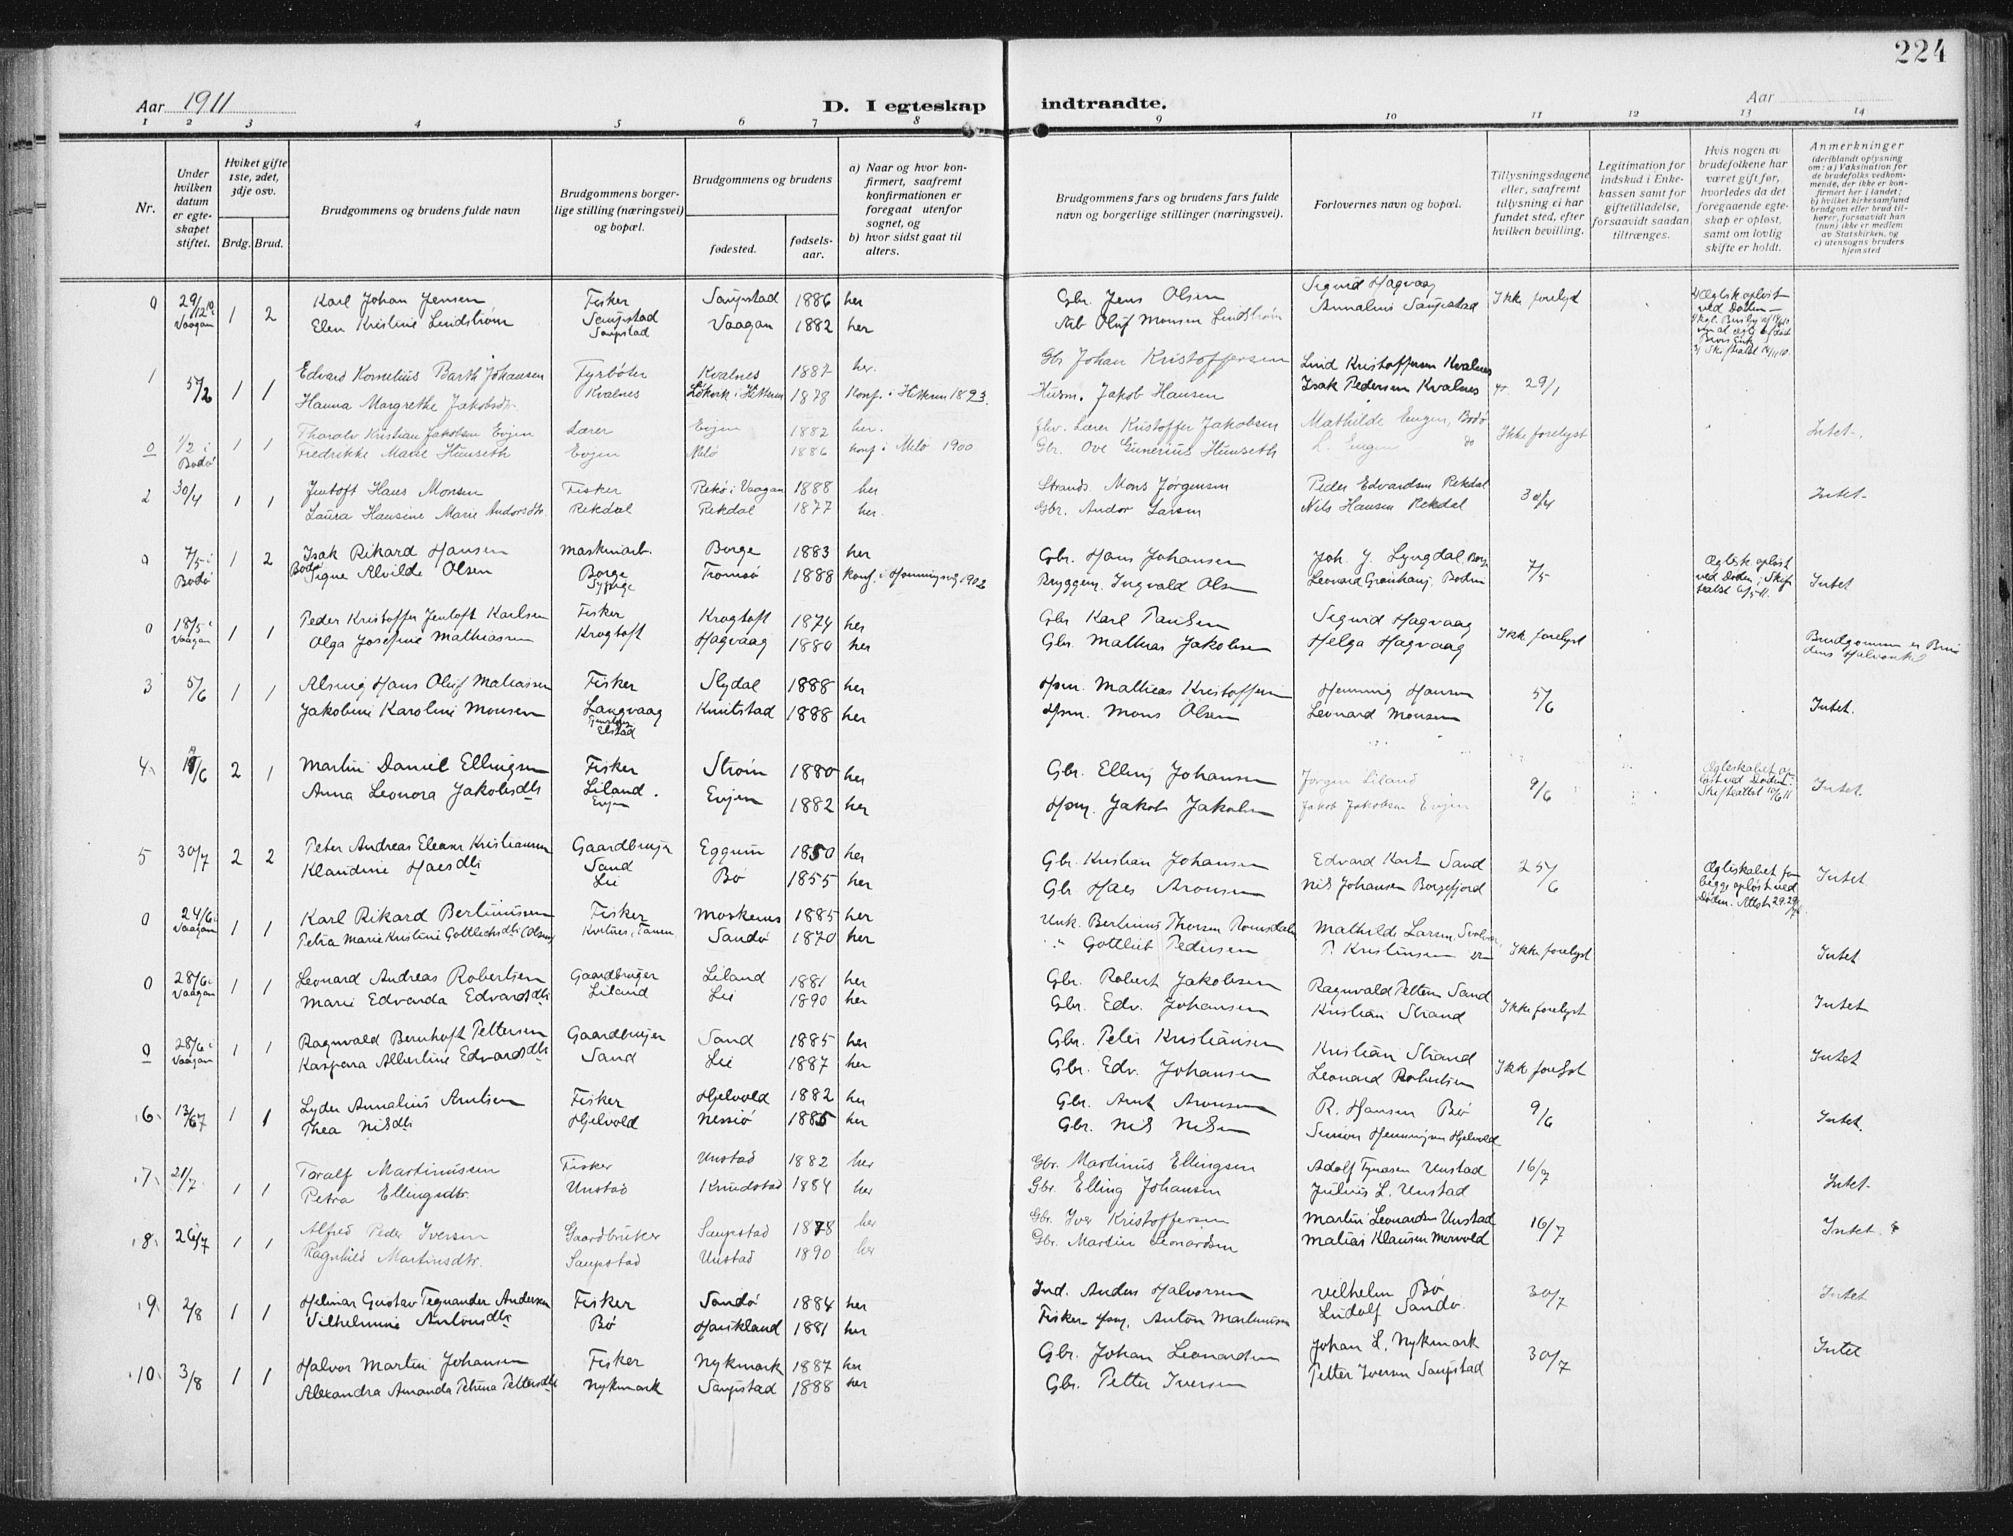 224
Aar 1911
D. I egteskap indtraadte.
Aar
1 2 3 4 5 6 7 8 9 10 11 12 13 14
Nr.
Under hvilken datum er egteskapet stiftet.
Hvilket gifte 1ste, 2det, 3dje osv.
Brdg. Brud.
Brudgommens og brudens fulde navn
Brudgommens borgerlige stilling (næringsvei) og bopæl.
Brudgommens og brudens
fødested.
fødselsaar.
a) Naar og hvor konfirmert, saafremt konfirmationen er foregaat utenfor sognet, og
b) hvor sidst gaat til alters.
Brudgommens fars og brudens fars fulde navn og borgerlige stillinger (næringsvei).
Forlovernes navn og bopæl.
Tillysningsdagene eller, saafremt tillysning ei har fundet sted, efter hvilken bevilling.
Legitimation for indskud i Enkekassen samt for giftetilladelse, forsaavidt saadan tiltrænges.
Hvis nogen av brudefolkene har været gift før, hvorledes da det foregaaende egteskap er opløst, samt om lovlig skifte er holdt.
Anmerkninger (deriblandt oplysning om: a) Vaksination for de brudefolks vedkommende, der ikke er konfirmert her i landet; b) hvilket kirkesamfund brudgom eller brud tilhører, forsaavidt han (hun) ikke er medlem av Statskirken, og c) utensogns bruders hjemsted
0 29/12 10 i Vaagan 1 2 Karl Johan Jensen Fisker Saupstad Saupstad 1886 her Gbr. Jens Olsen Sigurd Hagvaag Ikke forelyst
Elen Kristine Lindstrøm Saupstad Vaagan 1882 her Arb Oluf Monsen Lindstrøm Annalius Saupstad
1 5/2 1 1 Edvard Kornelius Barth Johansen Fyrbøter Kvalnes 1887 her. Gbr Johan Kristoffersen Lind Kristoffersen Kvalnes 29/1
Hanna Margrethe Jakobsdtr. Kvalnes 1878 Konf. i Hitterø 1893. Husm. Jakob Hansen Isak Pedersen Kvalnes
0 1/2 i Bodø 1 1 Tharalv Kristian Jakobsen Evjen Lærer Evjen 1882 her. fhv. Lærer Kristoffer Jakobsen Mathilde Engen, Bodø Ikke forelyst Intet.
Fredrikke Marie Hunseth Evjen Melø 1886 Konf i Melø 1900 Gbr. Ove Gunerius Hunseth L. Engen do
2 30/4 1 1 Jentoft Hans Monsen Fisker Rekø i Vaagan 1888 her Strands. Mons Jørgensen Peder Edvardsen Rekdal 30/4 Intet
Laura Hansine Marie Andorsdtr. Rekdal Rekdal 1877 her. Gbr. Andor Larsen Nils Hansen Rekdal
0 7/5 i Bodø 1 2 Isak Rikard Hansen Maskinarb. Borge 1883 her Gbr. Hans Johansen Joh. J. Lyngdal Borge 7/5 Intet
Signe Alvilde Olsen Borge Tromsø 1888 Konf. i Honningsvg 1902 Bryggem. Ingvald Olsen
0 18/5 i Vaagan 1 1 Peder Kristoffer Jentoft Karlsen Fisker Krogtoft 1874 her Gbr Karl Paulsen Sigurd Hagvaag Ikke forelyst
Olga Josefine Mathiassen Krogtoft Hagvaag 1880 her Gbr. Mathias Jakobsen Helga Hagvaag Brudgommen er Brudens Halvonkel
3 5/6 1 1 Alsing Hans Oluf Matiassen Fisker Slydal 1888 her Hsm. Mathias Kristoffersen Henning Hansen 5/6 Intet.
Jakobine Karoline Monsen Langvaag Knutstad 1888 her Hsm. Mons Olsen Leonard Monsen
4 /6 2 1 Martin Daniel Ellingsen Fisker Liland Strøm 1880 her Gbr. Elling Johansen Jørgen Liland 9/6 Intet
Anna Leonora Jakobsdtr Evjen Evjen 1882 her Hsm. Jakob Jakobsen Jakob Jakobsen Evjen
5 30/7 2 2 Peter Andreas Eleasr Kristiansen Gaardbruger Sand Eggum 1850 her Gbr. Kristian Johansen Edvard Sand 25/6 Intet
Klaudine Haesdtr Lie Bø 1855 her Gbr Haes Aronsen Nils Johansen Borgefjord
0 24/6 i Vaagan 1 1 Karl Rikard Berliniussen Fisker Moskenes 1885 her Unk. Berlinus Thorsen Romsdalen Mathilde Larsen Svolvær Ikke forelyst Intet
Petra Marie Kristine Gottliebsdtr (Olsen) Sandø 1870 her " Gottlieb Pedersen P. Kristiansen
0 28/6 i Vaagan 1 1 Leonard Andreas Robertsen Gaardbruger Liland 1881 her Gbr. Robert Jakobsen Ragnvald Pettersen Sand Ikke forelyst Intet
Marie Edvarda Edvardsdtr Liland Lie 1890 her Gbr. Edv. Johansen Kristian Strand
0 28/6 i Vaagan 1 1 Ragnvald Bernhoft Pettersen Gaardbruger Sand 1885 her Gbr. Peter Kristiansen Kristian Strand Ikke forelyst Intet
Kaspara Albertine Edvardsdtr Sand Lie 1887 her Gbr. Edv. Johansen Leonard Robertsen
6 13/7 1 1 Lyder Annalius Arntsen Fisker Hjelvold 1882 her Gbr. Arnt Aronsen R. Hansen Bø 9/6 Intet.
Thea Nilsdtr Hjelvold 1885 her Gbr. Nils Nilsen Simon Henningsen Hjelvold
7 21/7 1 1 Toralf Martinussen Fisker Unstad 1882 her Gbr. Martinus Ellingsen Adolf Tynæsen Unstad 16/7 Intet.
Petra Ellingsdtr. Unstad Knudstad 1884 her Gbr. Elling Johansen Julius L. Unstad
8 26/7 1 1 Alfred Peder Iversen Gaardbruker Saupstad 1878 her Gbr. Iver Kristoffersen Martin Leonardsen Unstad 16/7 Intet.
Ragnhild Martinsdtr. Saupstad Unstad 1890 her Gbr. Martin Leonardsen Matias Klausen Mervold
9 2/8 1 1 Hilmar Gustav Tegnander Andersen Fisker Sandø 1884 her Ind. Anders Halvorsen Vilhelm Bø 30/7 Intet
Vilhelmine Antonsdtr Bø Haukland 1881 her Fisker Hsm. Anton Martinussen Ludolf Sandø.
10 3/8 1 1 Halvor Martin Johansen Fisker Nykmark 1887 her Gbr. Johan Leonardsen Johan L. Nykmark 30/7 Intet
Alexandra Amanda Petrina Pettersdtr Nykmark Saupstad 1888 her Gbr. Petter Iversen Petter Iversen Saupstad